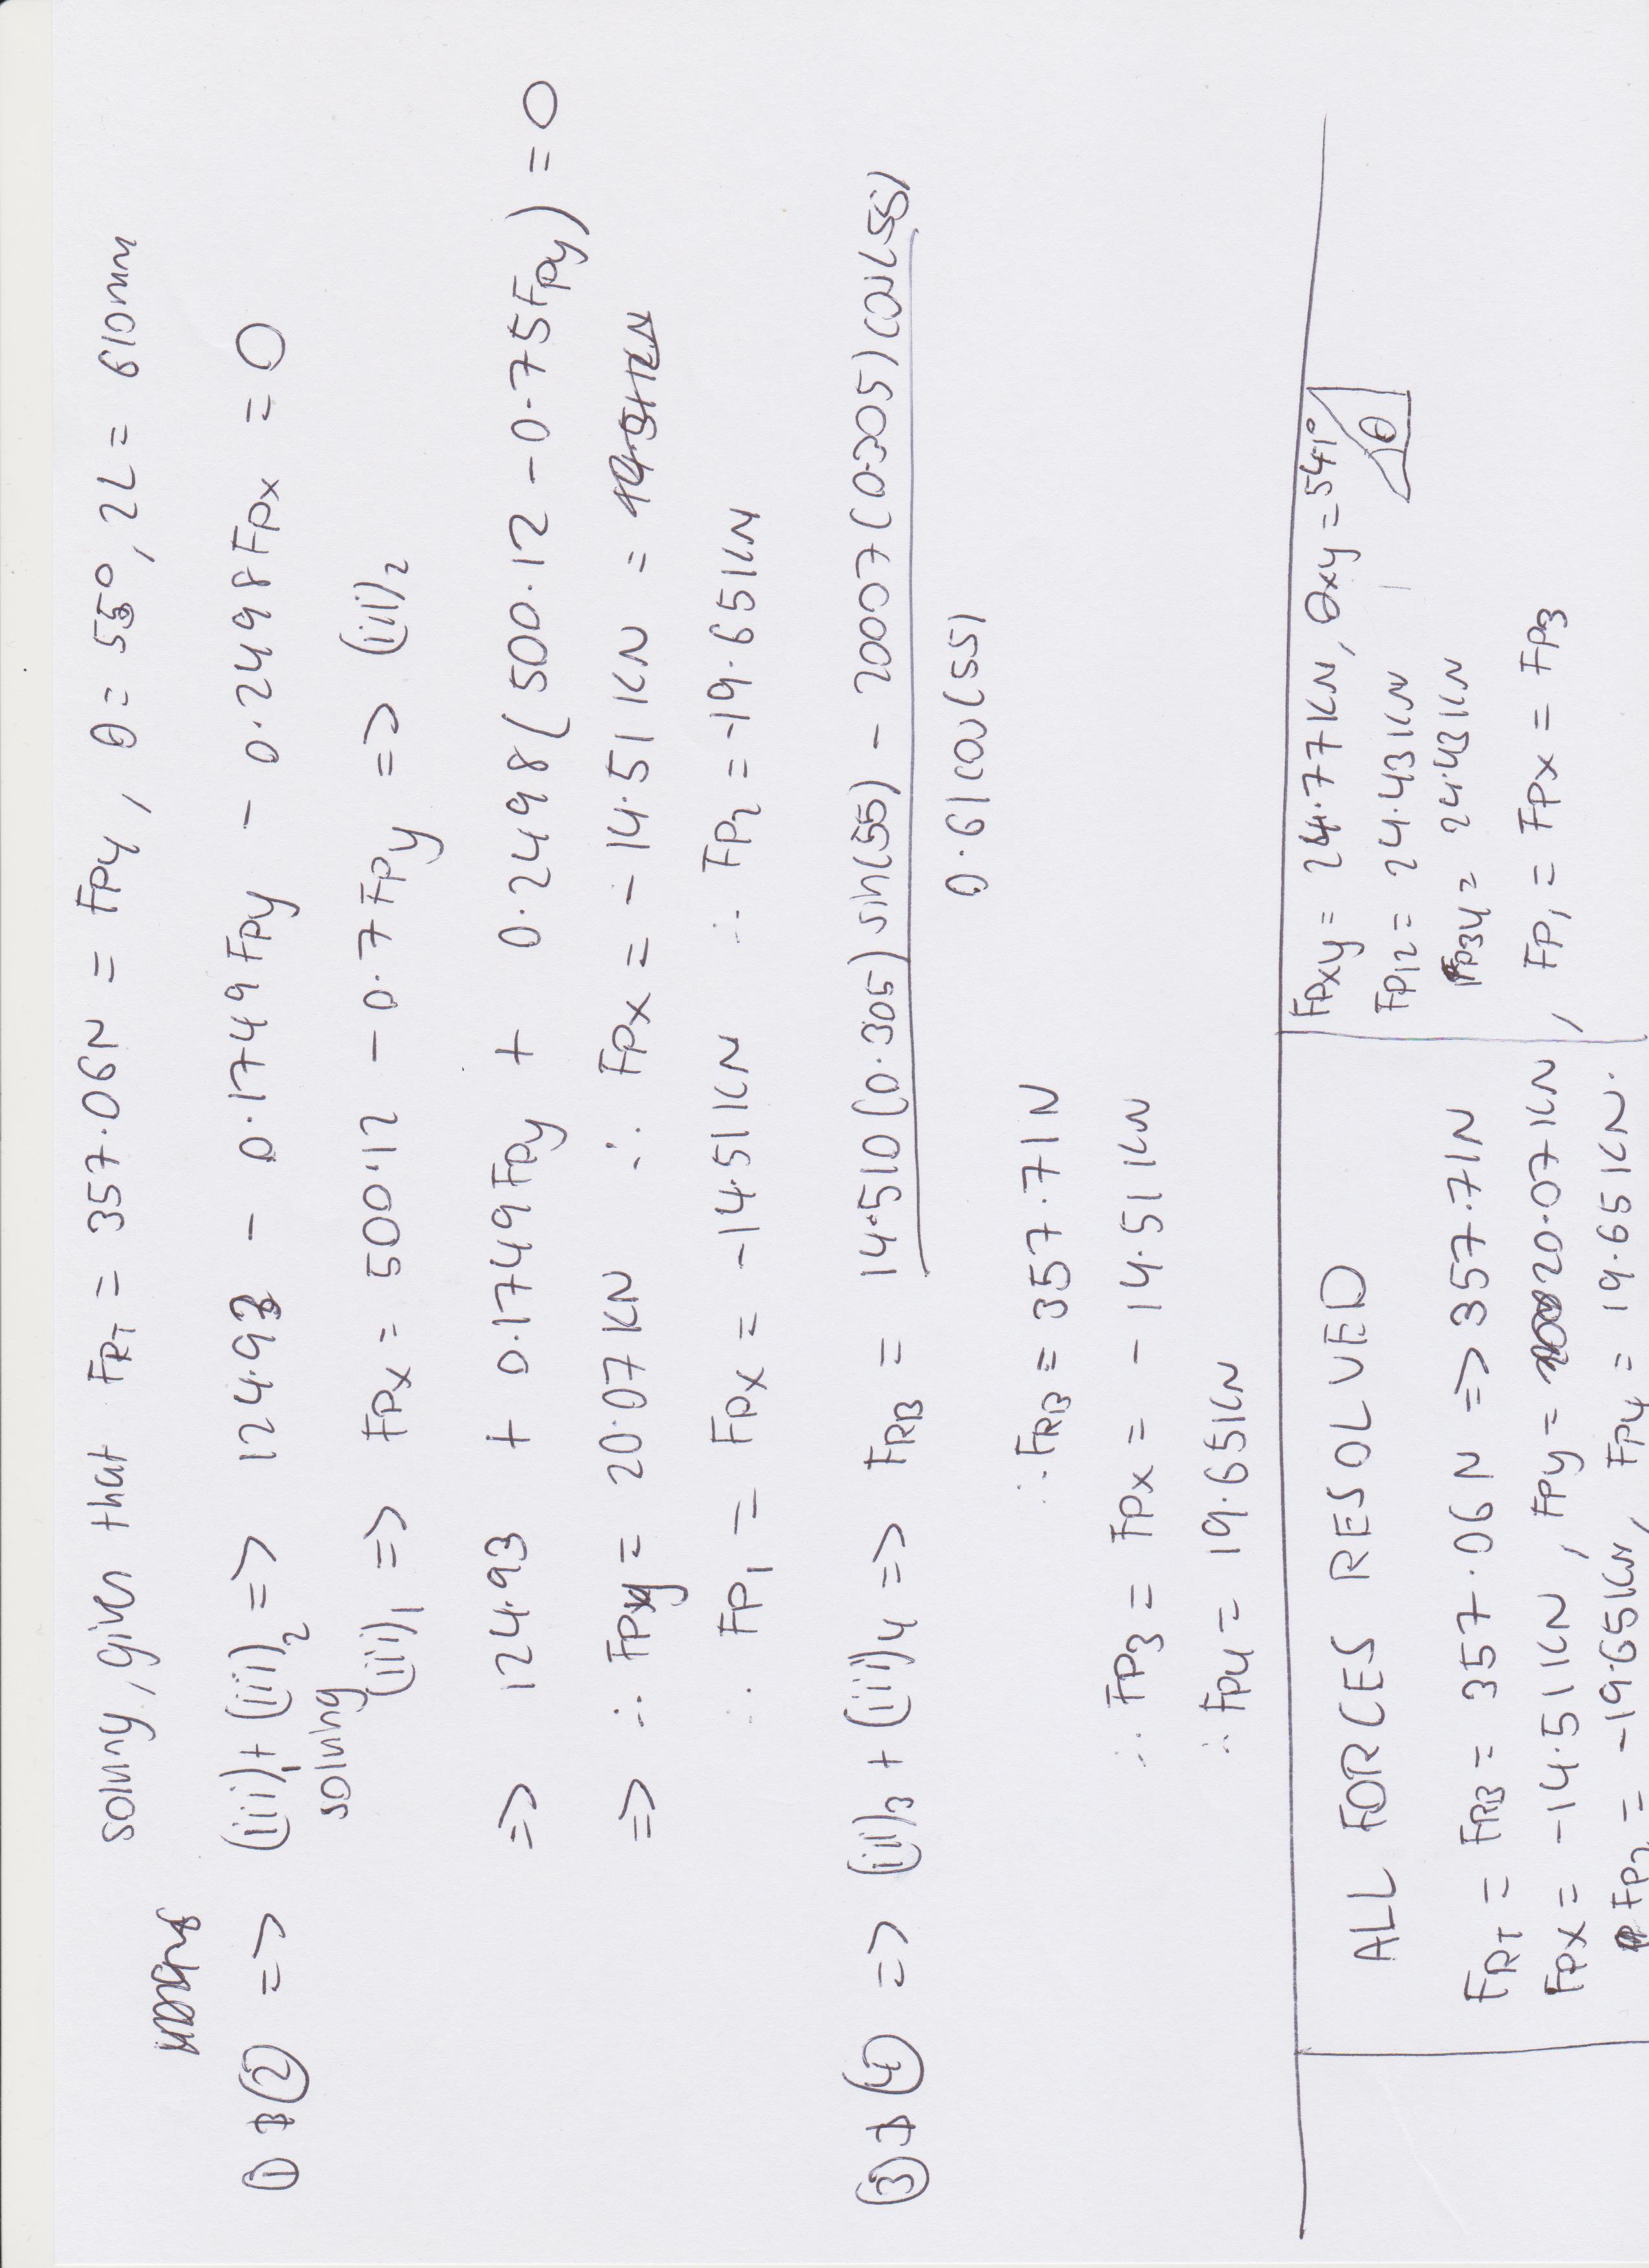 solving, given that FRT = 357.06N = FPY, θ = 55°, 2L = 610mm
① + ② => (iii)1 + (iii)2 => 124.93 - 0.1749 FPy - 0.2498 FPx = 0
solving
(iii)1 => FPx = 500.12 - 0.7 FPy => (iii)2
=> 124.93 + 0.1749 FPy + 0.2498 (500.12 - 0.75 FPy) = 0
=> ∴ FPy = 20.07 KN ∴ FPx = -14.51 KN =
∴ FP1 = FPx = -14.51 KN ∴ FP2 = -19.65 KN
③ + ④ => (iii)3 + (iii)4 => FRB = 14.510 (0.305) sin(55) - 20.07 (0.305) cos(55)
0.61 cos(55)
∴ FRB = 357.71 N
∴ FP3 = FPx = -14.51 KN
∴ FP4 = 19.65 KN
ALL FORCES RESOLVED
FRT = FRB = 357.06 N => 357.71N
FPX = -14.51 KN, FPy = 20.07 KN, FP1 = FPX = FP3
FP2 = -19.65 KN, FP4 = 19.65 KN.
FPxy = 24.77 KN, θxy = 54.1°
FP12 = 24.43 KN
FP34 = 24.43 KN
θ